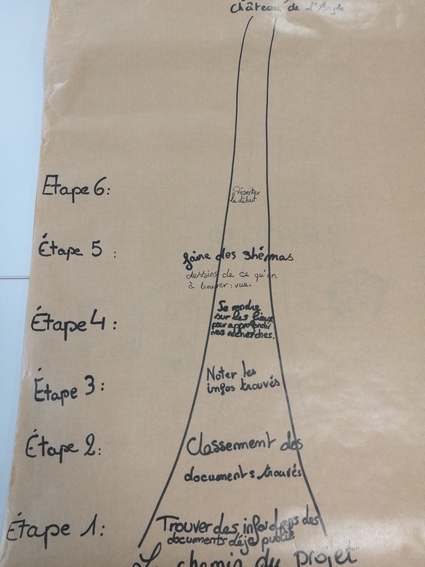 Château de l'Angle
Étape 6:
Présenter
le début
Étape 5 :
faire des shémas
dessins de ce qu'on
à trouver : vue.
Étape 4 :
Se rendre
sur les lieux
pour approfondir
nos recherches.
Étape 3 :
Noter les
infos trouvés
Étape 2:
Classement des
documents trouvés
Étape 1:
Trouver des infos dans des
documents déjà publié
Le chemin du projet